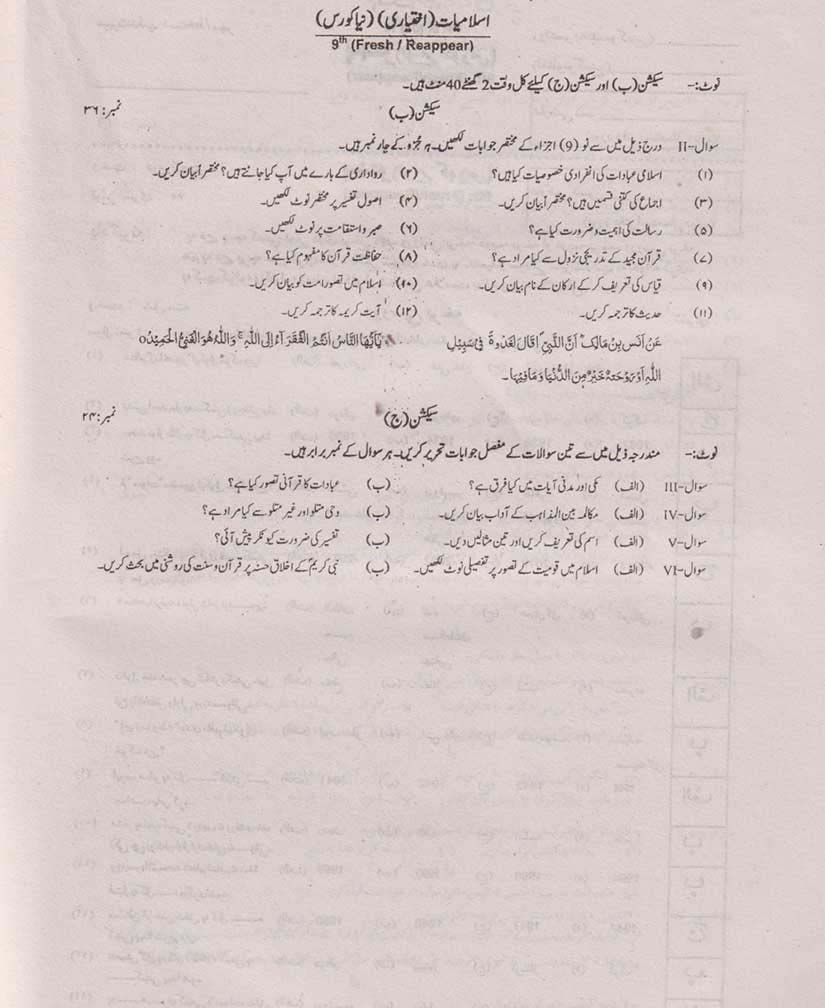 اسلامیات (اختیاری) (نیا کورس)
9th (Fresh / Reappear)
نوٹ:- سیکشن (ب) اور سیکشن (ج) کیلئے کل وقت 2 گھنٹے 40 منٹ ہیں۔
سیکشن (ب) نمبر: ۳۶
سوال-II درج ذیل میں سے نو (9) اجزاء کے مختصر جوابات لکھیں۔ ہر جُزو کے چار نمبر ہیں۔
(۱) اسلامی عبادات کی انفرادی خصوصیات کیا ہیں؟ (۲) رواداری کے بارے میں آپ کیا جانتے ہیں؟ مختصراً بیان کریں۔
(۳) اجماع کی کتنی قسمیں ہیں؟ مختصراً بیان کریں۔ (۴) اصول تفسیر پر مختصر نوٹ لکھیں۔
(۵) رسالت کی اہمیت و ضرورت کیا ہے؟ (۶) صبر و استقامت پر نوٹ لکھیں۔
(۷) قرآن مجید کے تدریجی نزول سے کیا مراد ہے؟ (۸) حفاظت قرآن کا مفہوم کیا ہے؟
(۹) قیاس کی تعریف کر کے ارکان کے نام بیان کریں۔ (۱۰) اسلام میں تصور امت کو بیان کریں۔
(۱۱) حدیث کا ترجمہ کریں۔ (۱۲) آیت کریمہ کا ترجمہ کریں۔
عَنْ اَنَس بِنْ مَالِکؓ اَنَّ النَّبِیَّ ؐ قَالَ لَغَدْوَۃٌ فِیْ سَبِیْلِ یٰٓاَیُّھَا النَّاسُ اَنْتُمُ الْفُقَرَآءُ اِلَی اللّٰہِ ۚ وَاللّٰہُ ھُوَ الْغَنِیُّ الْحَمِیْدُ o
اللّٰہِ اَوْ رَوْحَتَہٌ خَیْرٌ مِّنَ الدُّنْیَا وَمَافِیْھَا۔
سیکشن (ج) نمبر: ۲۴
نوٹ:- مندرجہ ذیل میں سے تین سوالات کے مفصل جوابات تحریر کریں۔ ہر سوال کے نمبر برابر ہیں۔
سوال-III (الف) مکی اور مدنی آیات میں کیا فرق ہے؟ (ب) عبادات کا قرآنی تصور کیا ہے؟
سوال-IV (الف) مکالمہ بین المذاہب کے آداب بیان کریں۔ (ب) وحی متلو اور غیر متلو سے کیا مراد ہے؟
سوال-V (الف) اسم کی تعریف کریں اور تین مثالیں دیں۔ (ب) تفسیر کی ضرورت کیونکر پیش آئی؟
سوال-VI (الف) اسلام میں قومیت کے تصور پر تفصیلی نوٹ لکھیں۔ (ب) نبی کریمؐ کے اخلاق حسنہ پر قرآن و سنت کی روشنی میں بحث کریں۔